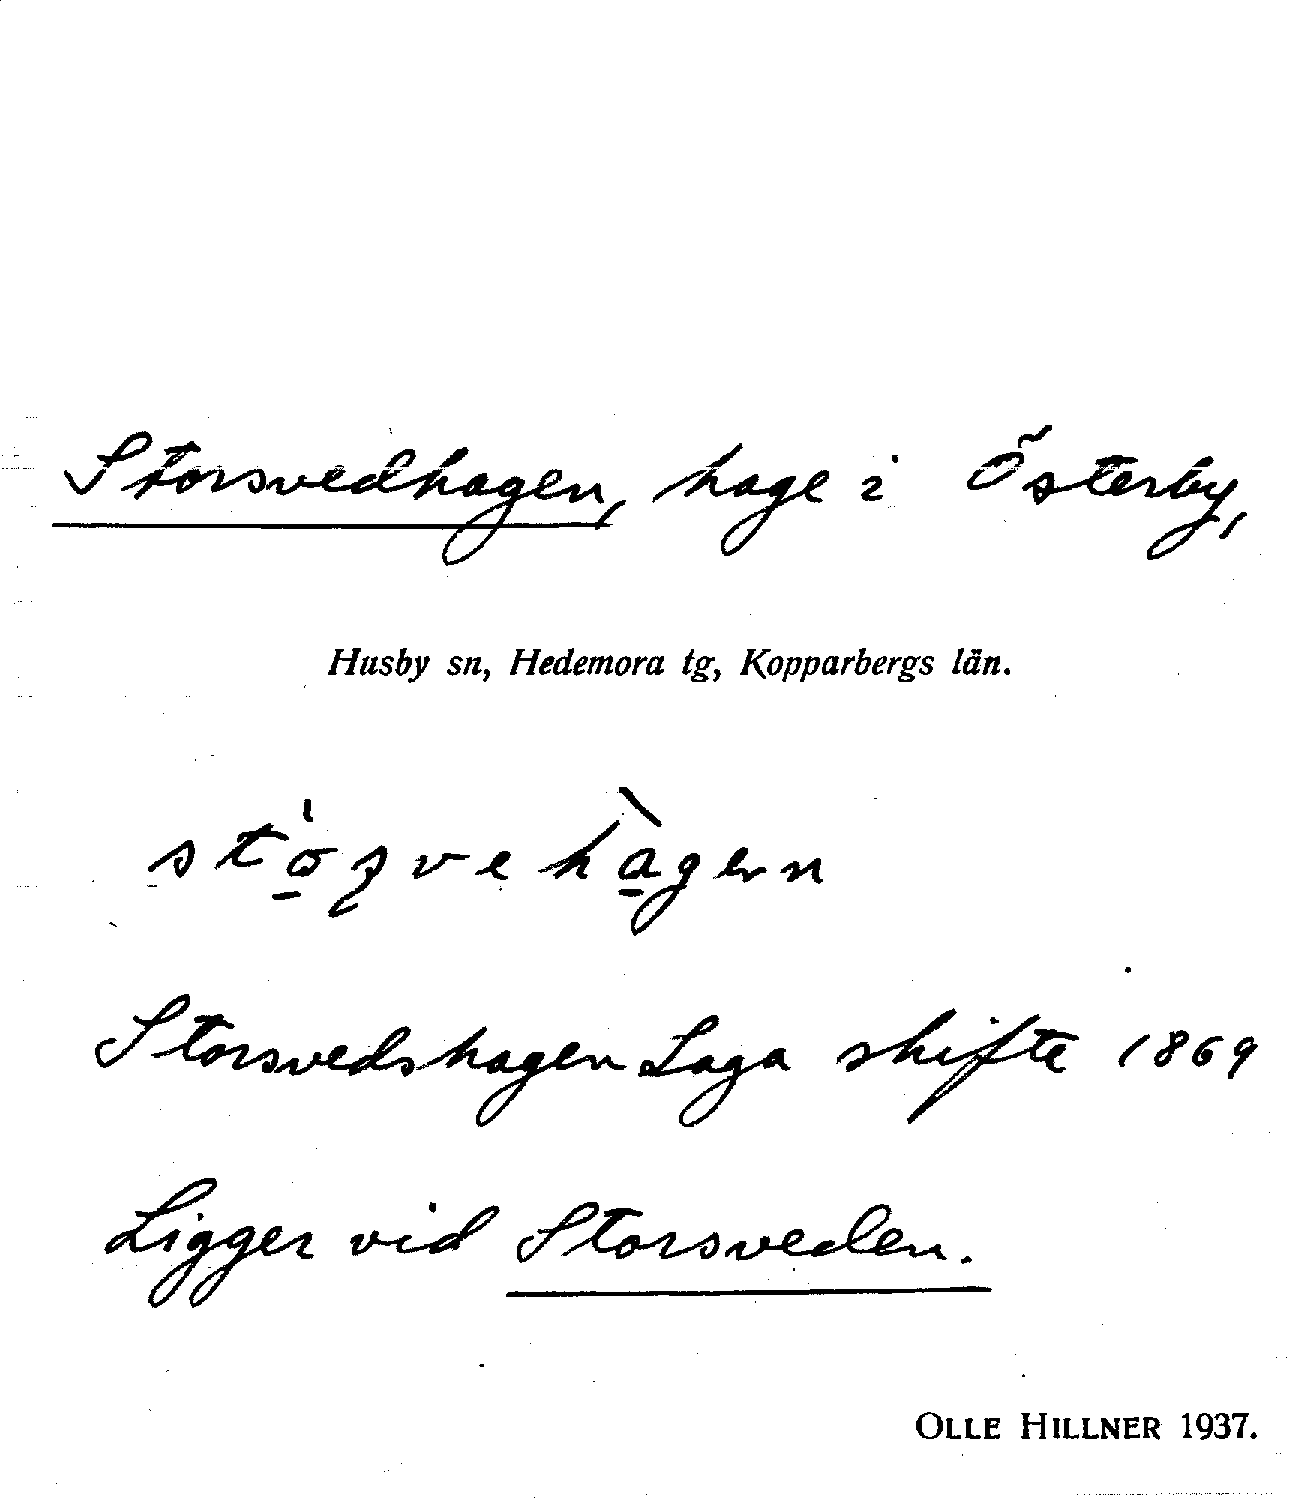 Storsvedhagen, hage i Österby,
Husby sn, Hedemora tg, Kopparbergs län.
Storsvedshagen Laga skifte 1869
Ligger vid Storsveden.
OLLE HILLNER 1937.